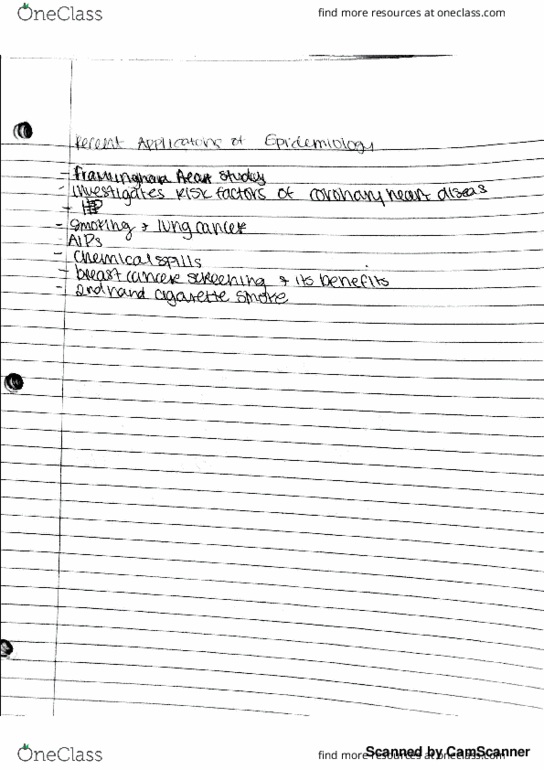 OneClass
find more resources at oneclass.com
Recent Applications of Epidemiology
- Framingham Heart Study
- investigates risk factors of coronary heart diseas
-
- smoking + lung cancer
AIDs
- chemical spills
- breast cancer screening + its benefits
- 2nd hand cigarette smoke
OneClass
find more resources at oneclass.com
Scanned by CamScanner